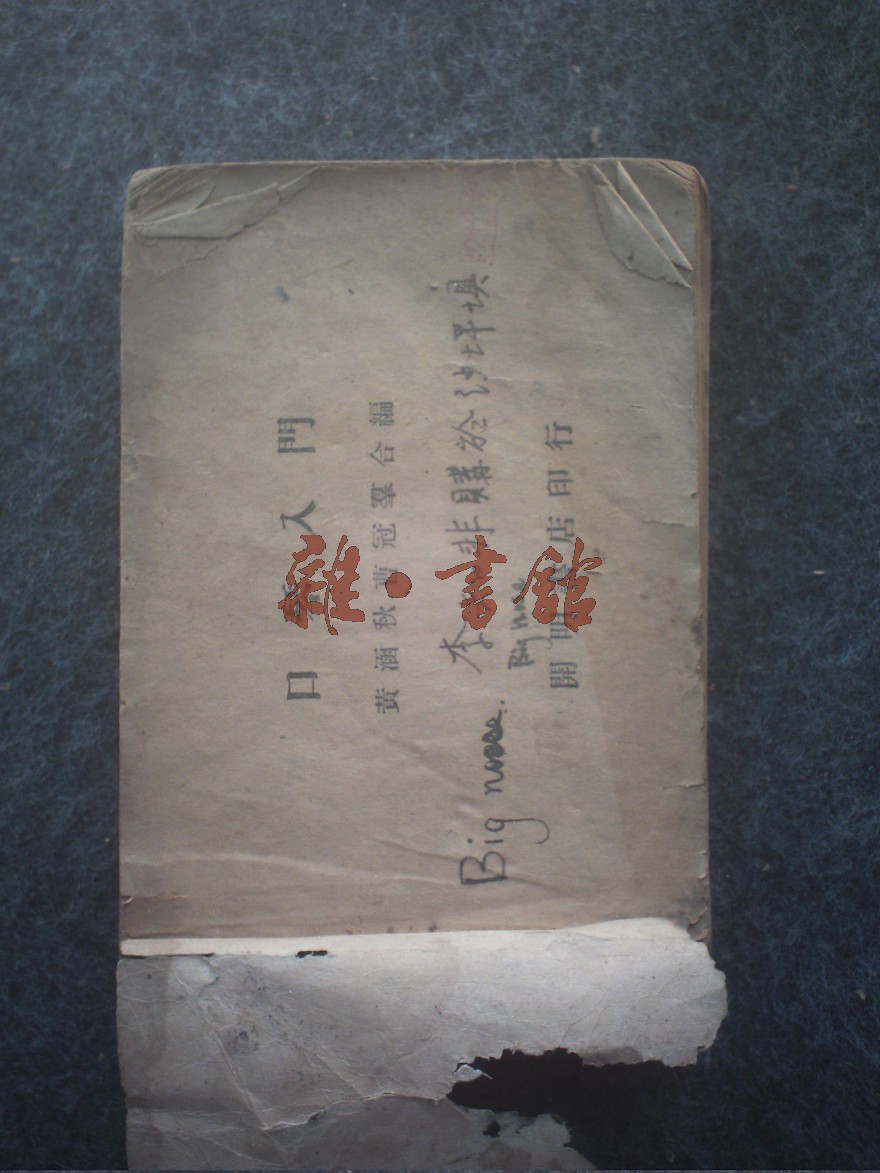 口琴入門
黃涵秋曹冠羣合編
李非購於沙坪埧
Big
Big nose
開明書店印行
雜·書館